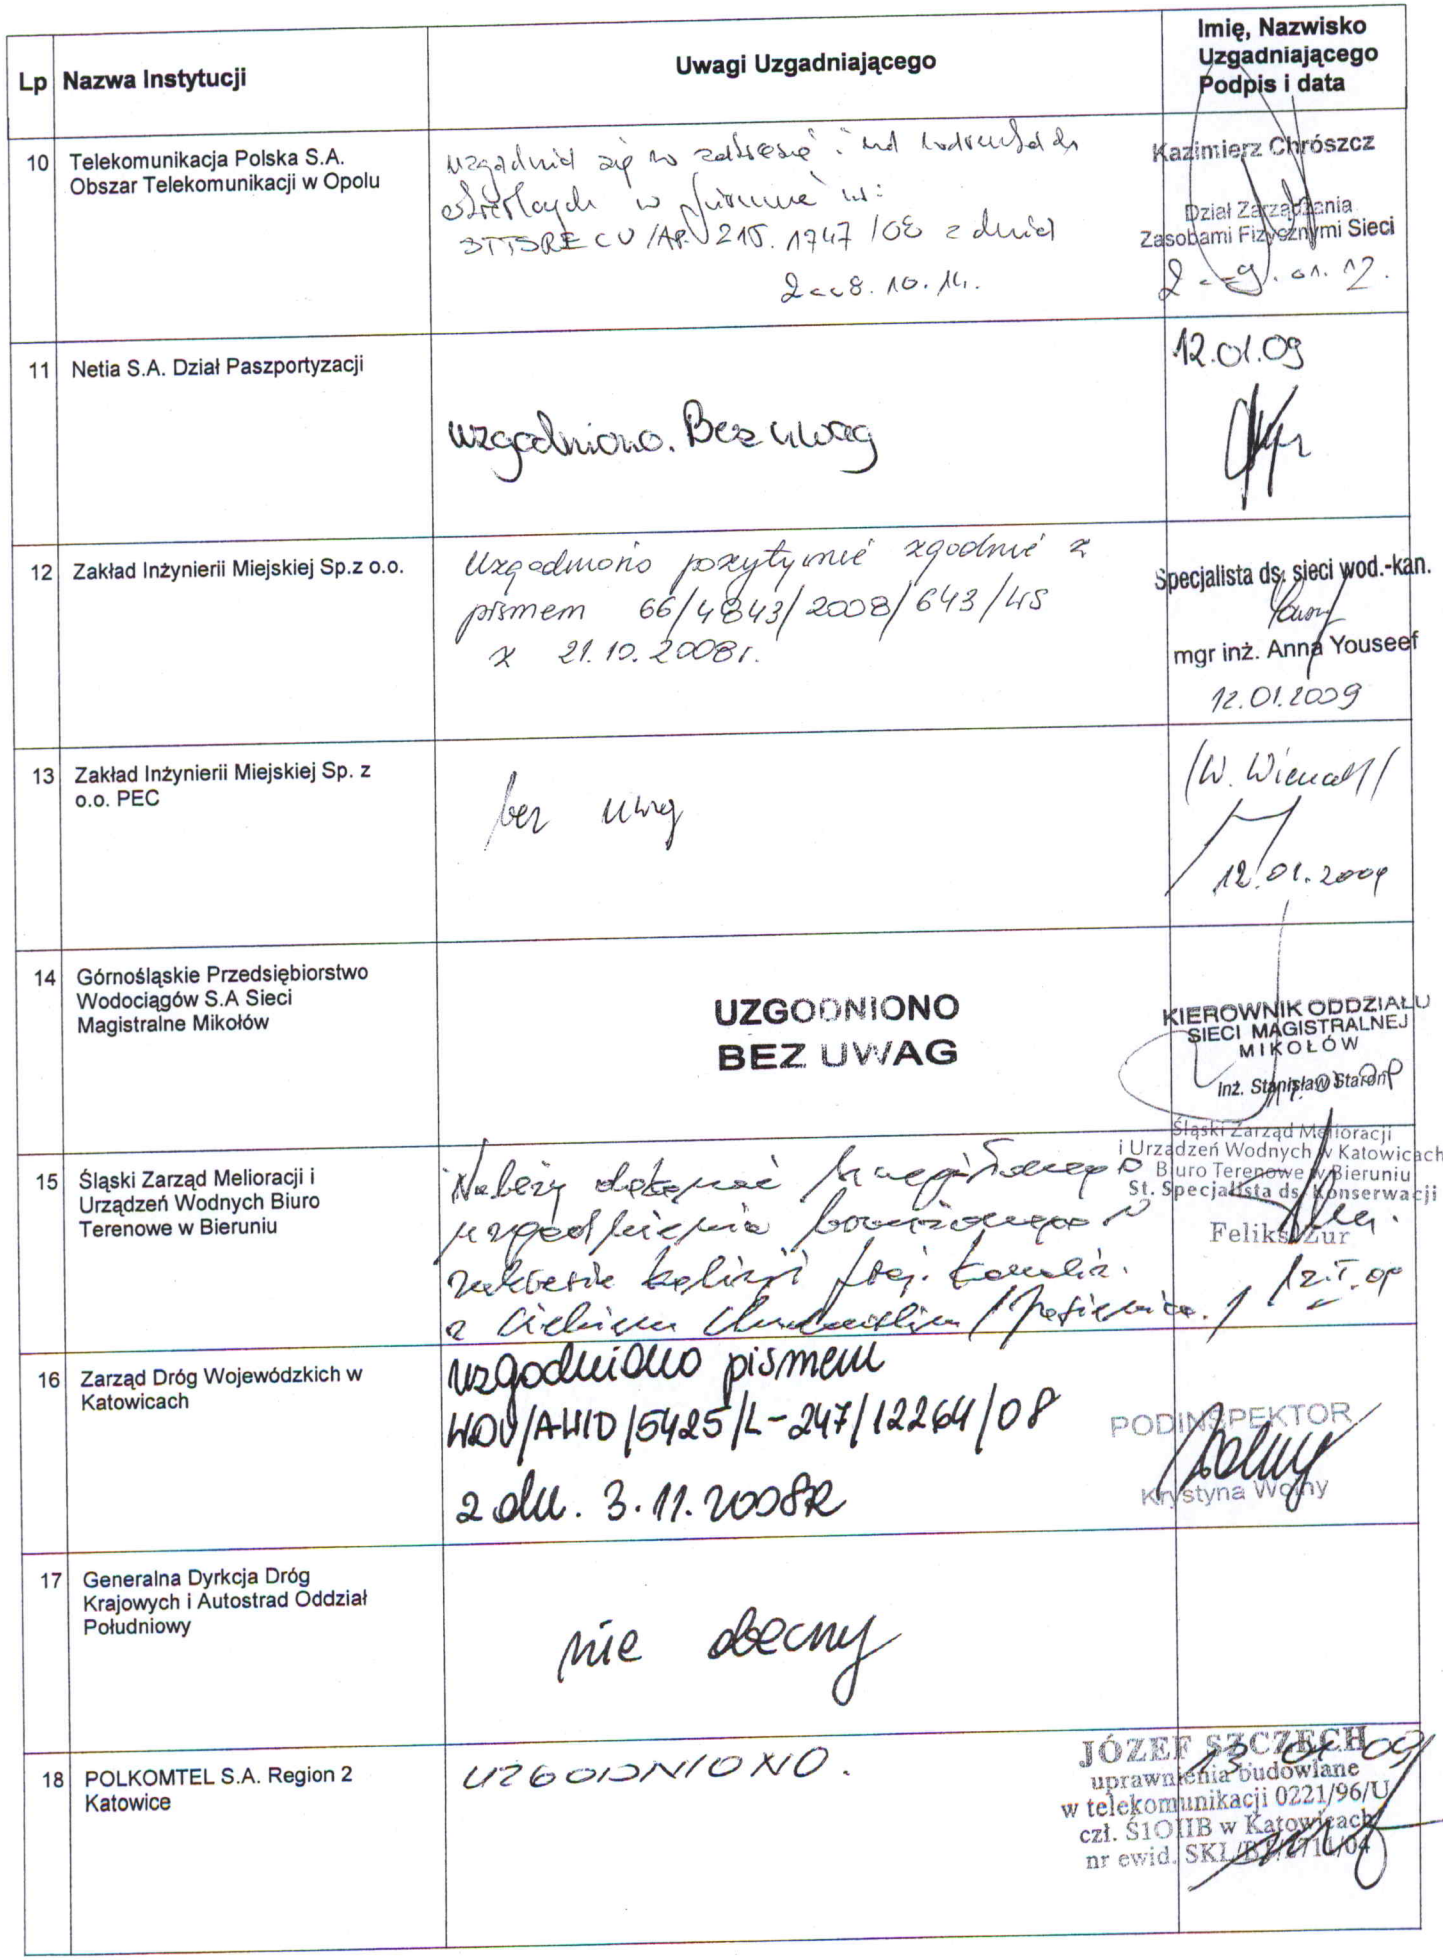 Lp Nazwa Instytucji
Uwagi Uzgadniającego
Imię, Nazwisko
Uzgadniającego
Podpis i data
10 Telekomunikacja Polska S.A.
Obszar Telekomunikacji w Opolu
się w zakresie i
w piśmie
215. 1747 /08 z dnia
2008.10.14.
Kazimierz Chrószcz
Dział Zarządzania
Zasobami Fizycznymi Sieci
2009.01.12.
11 Netia S.A. Dział Paszportyzacji
uzgodniono. Bez uwag
12.01.09
12 Zakład Inżynierii Miejskiej Sp.z o.o.
Uzgodniono pozytywnie zgodnie z
pismem 66/4843/2008/643/WS
z 21.10.2008r.
Specjalista ds. sieci wod.-kan.
mgr inż. Anna Youseef
12.01.2009
13 Zakład Inżynierii Miejskiej Sp. z
o.o. PEC
bez uwag
12.01.2009
14 Górnośląskie Przedsiębiorstwo
Wodociągów S.A Sieci
Magistralne Mikołów
UZGODNIONO
BEZ UWAG
KIEROWNIK ODDZIAŁU
SIECI MAGISTRALNEJ
MIKOŁÓW
Inż. Stanisław Staroń
15 Śląski Zarząd Melioracji i
Urządzeń Wodnych Biuro
Terenowe w Bieruniu
Należy dokonać szczegółowego
uzgodnienia branżowego w
zakresie kolizji proj. kanaliz.
z ciekiem
Śląski Zarząd Melioracji
i Urządzeń Wodnych w Katowicach
Biuro Terenowe w Bieruniu
St. Specjalista ds. Konserwacji
Feliks Żur
12.I.09
16 Zarząd Dróg Wojewódzkich w
Katowicach
uzgodniono pismem
WDU/AWID/5425/L-247/12264/08
z dn. 3.11.2008R
PODINSPEKTOR
Krystyna Wolny
17 Generalna Dyrkcja Dróg
Krajowych i Autostrad Oddział
Południowy
nie obecny
18 POLKOMTEL S.A. Region 2
Katowice
UZGODNIONO.
JÓZEF SZCZECH
13 01 09
uprawnienia budowlane
w telekomunikacji 0221/96/U
czł. ŚlOIIB w Katowicach
nr ewid. SKL/BT/2711/04